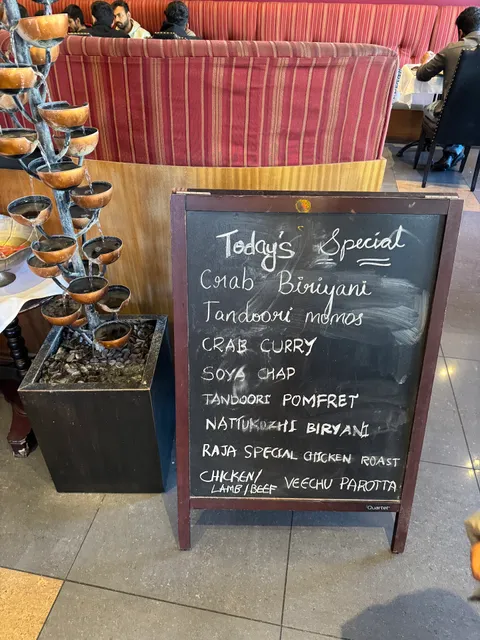 Today's Special
Crab Biriyani
Tandoori momos
CRAB CURRY
SOYA CHAP
TANDOORI POMFRET
NATTUKOZHI BIRYANI
RAJA SPECIAL CHICKEN ROAST
CHICKEN/
LAMB/BEEF VEECHU PAROTTA
Quartet